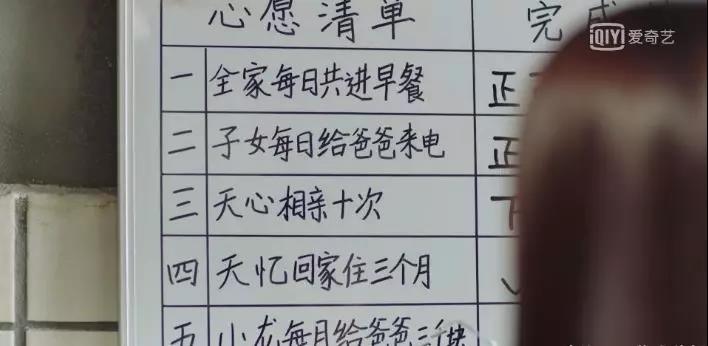 心愿清单 完成
QIY 爱奇艺
一 全家每日共进早餐 正
二 子女每日给爸爸来电 正
三 天心相亲十次
四 天忆回家住三个月
五 小龙每月给爸爸三